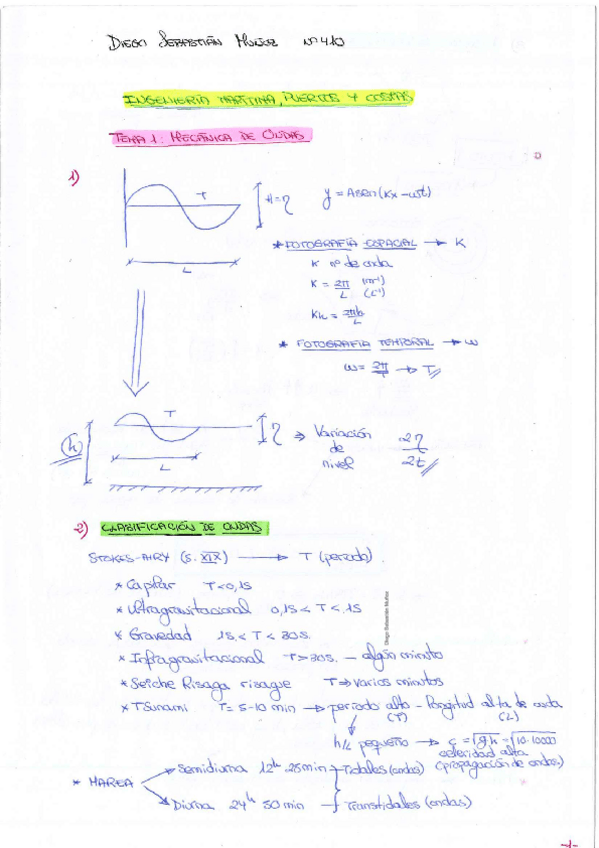 DIEGO SEBASTIÁN MUÑOZ Nº410
INGENIERÍA MARÍTIMA, PUERTOS Y COSTAS
TEMA 1: MECÁNICA DE ONDAS
1)
T
H=η
y = A sen(kx-ωt)
L
* FOTOGRAFÍA ESPACIAL → K
K nº de onda
K = 2π/L (m⁻¹) (L⁻¹)
Kh = 2πh/L
* FOTOGRAFÍA TEMPORAL → ω
ω = 2π/T → T
h
T
η
L
⇒ Variación de nivel ∂η/∂t
2) CLASIFICACIÓN DE ONDAS
STOKES-AIRY (S. XIX) → T (periodo)
* Capilar T<0,1s
* Ultragravitacional 0,1s < T < 1s
* Gravedad 1s < T < 30s.
* Infragravitacional T>30s. - algún minuto
* Seiche Risaga risague T⇒ varios minutos
* Tsunami T= 5-10 min → periodo alto - longitud alta de onda
(T) (L)
h/L pequeño → c = √gh = √10·10000
celeridad alta
(propagación de ondas)
* MAREA
Semidiurna 12h 25min
Diurna 24h 50min
Tidales (ondas)
Transtidales (ondas)
Diego Sebastián Muñoz
-1-